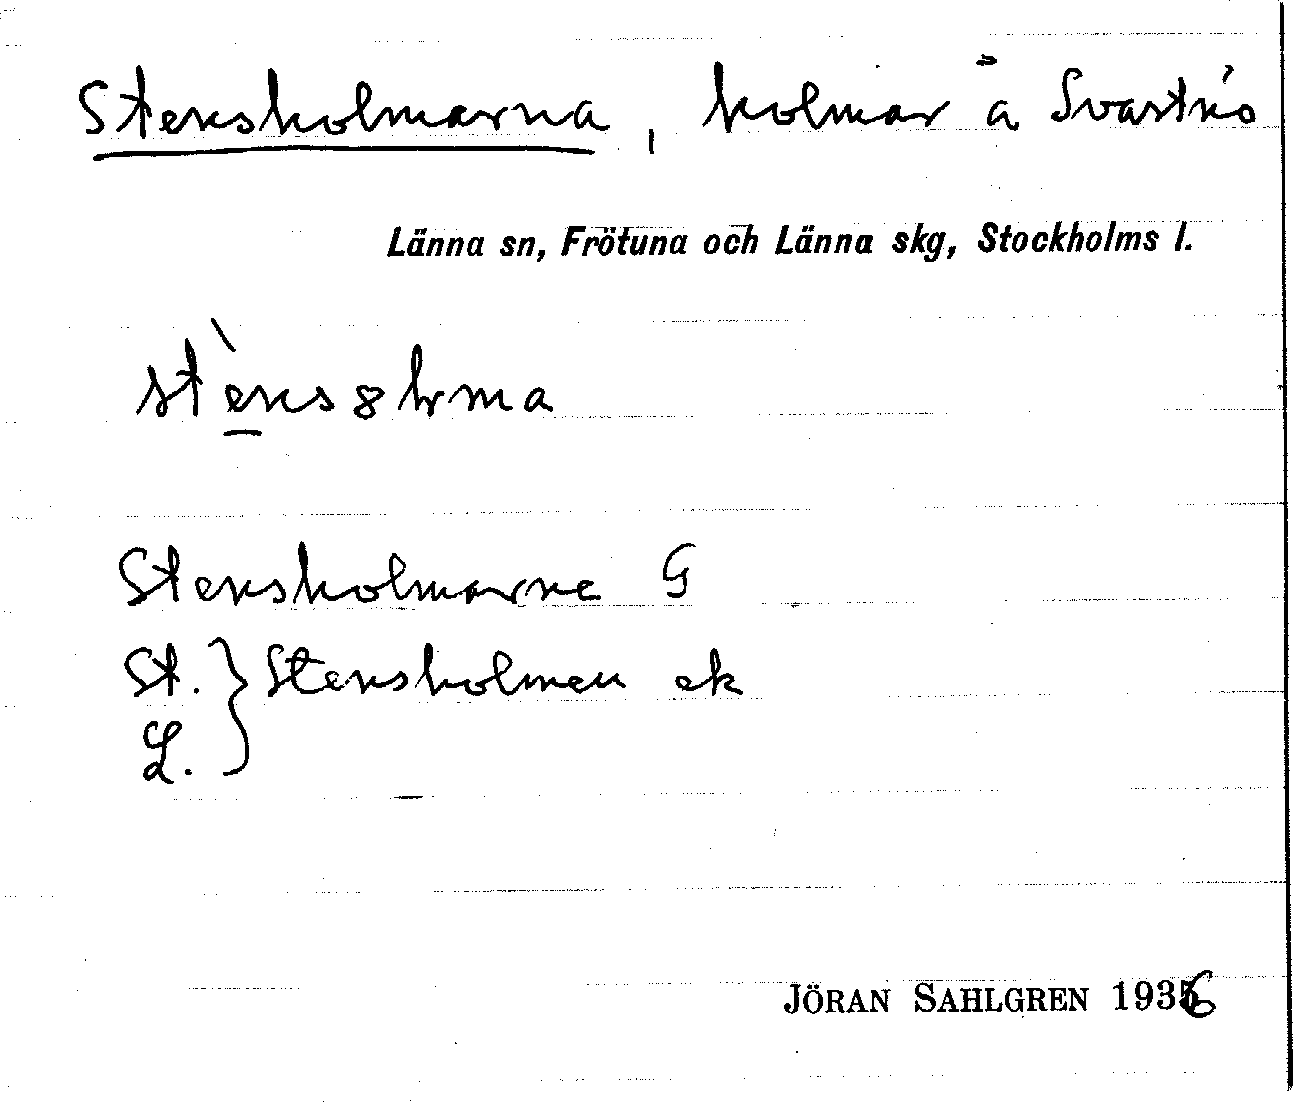 Stensholmarna, holmar å Svartnö
Länna sn, Frötuna och Länna skg, Stockholms l.
Stensholmarne G
St. } Stensholmen ek
L.
JÖRAN SAHLGREN 1936